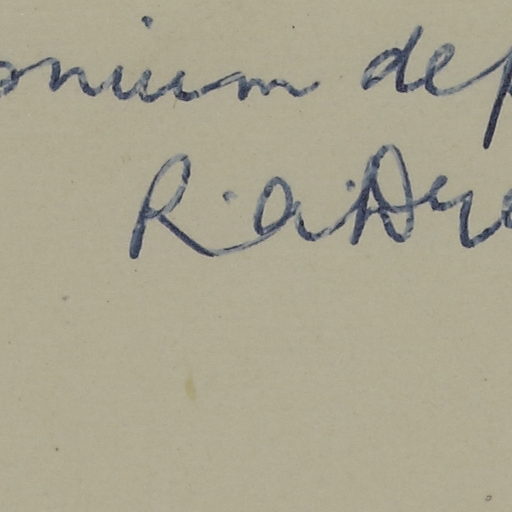 onium dep
R. A. Dye